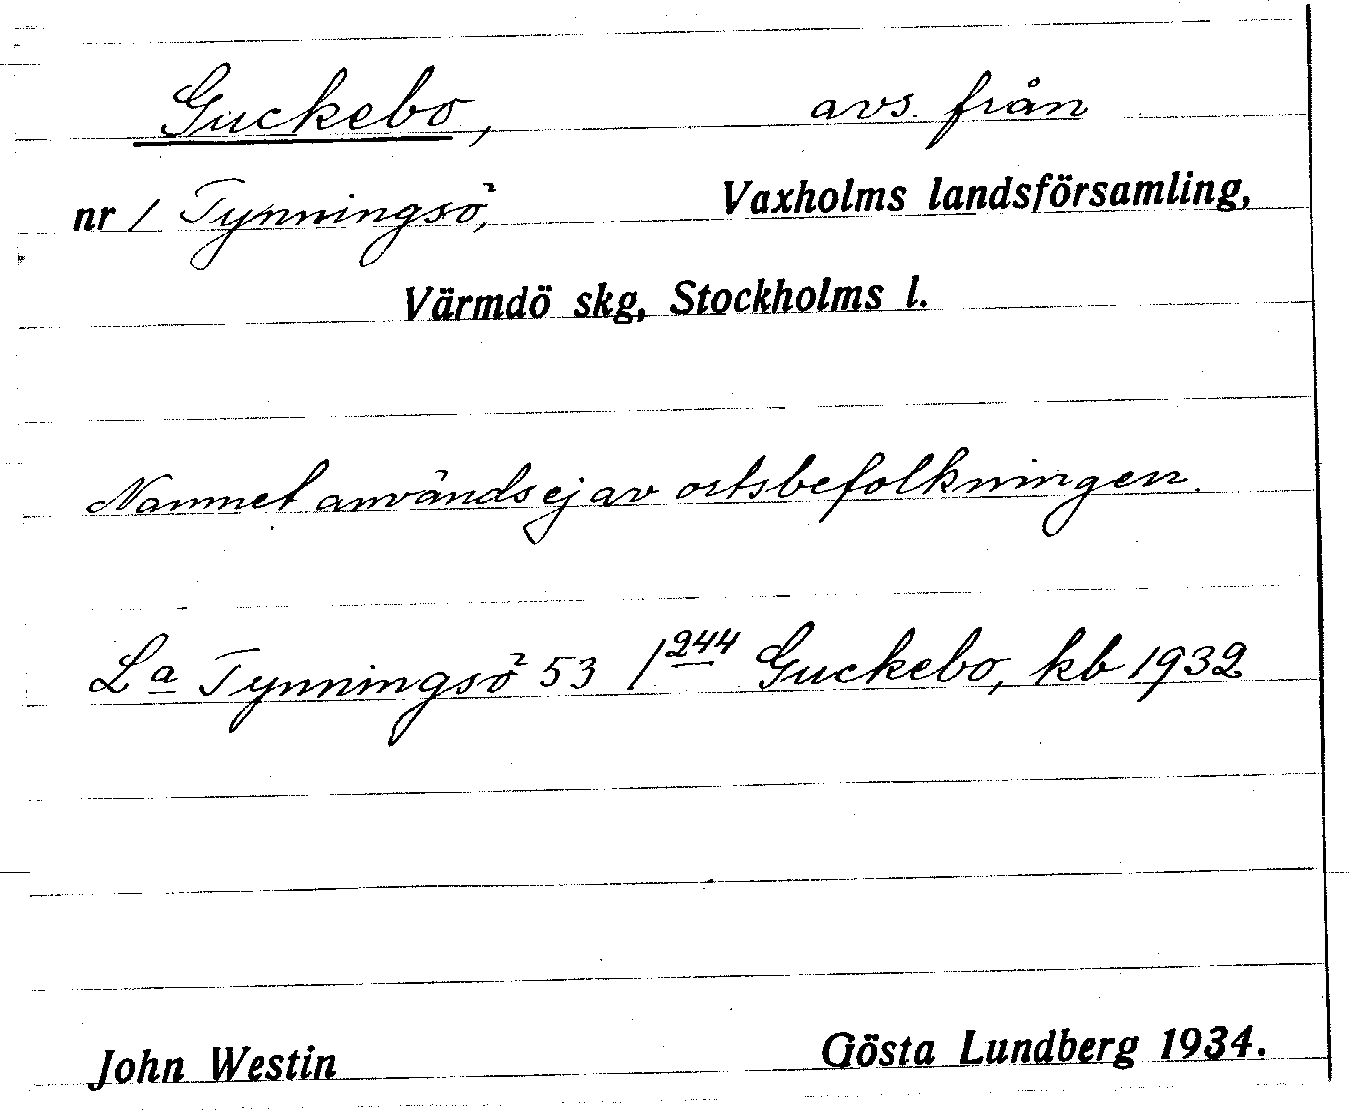 Guckebo, avs. från
nr 1 Tynningsö, Vaxholms landsförsamling,
Värmdö skg, Stockholms l.
Namnet används ej av ortsbefolkningen.
La Tynningsö 53 1 244 Guckebo, kb 1932
John Westin Gösta Lundberg 1934.